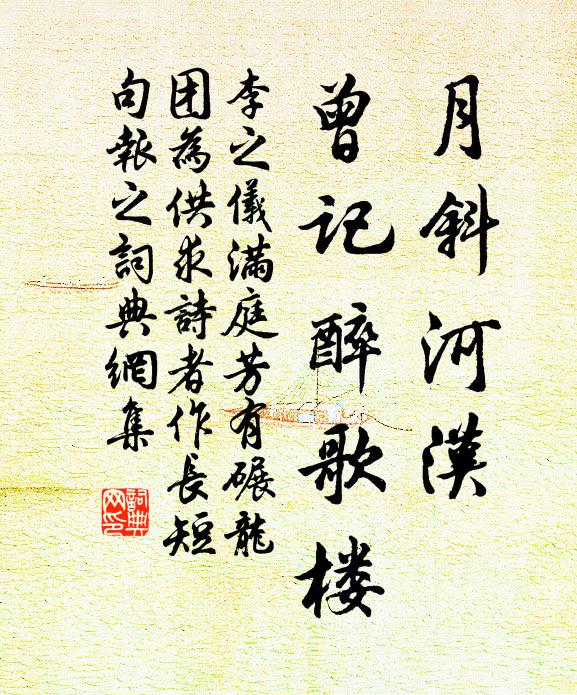 月斜河漢
曾记醉歌楼
李之儀滿庭芳有碾龍
团為供求詩者作長短
句報之詞典網集
詞典
网印